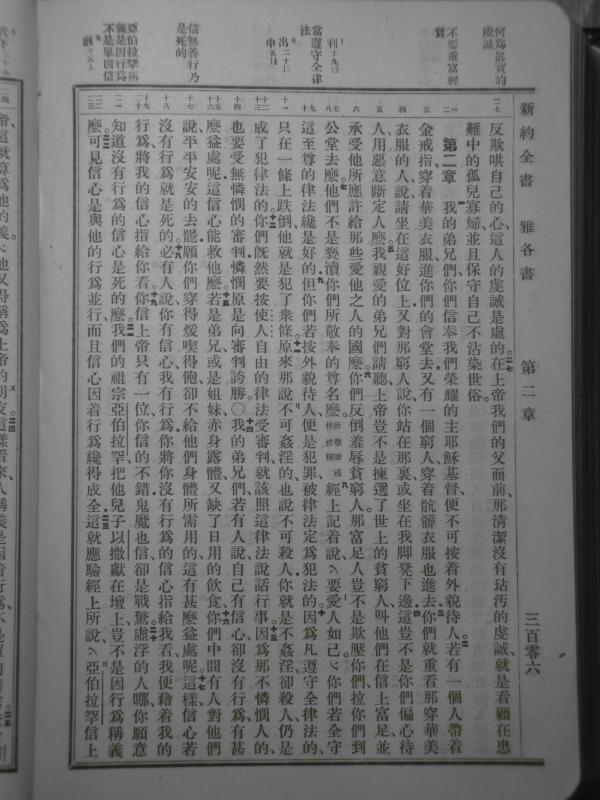 新約全書 雅各書 第二章 三百零六
何爲眞實的
虔誠
不要重富輕
貧
當遵守全律
法
信無善行乃
是死的
亞伯拉罕稱
義是因行爲
不是單因信
反欺哄自己的心這人的虔誠是虛的在上帝我們的父面前那清潔沒有玷汚的虔誠就是看顧在患
難中的孤兒寡婦並且保守自己不沾染世俗
第二章 我的弟兄們你們信奉我們榮耀的主耶穌基督便不可按着外貌待人若有一個人帶着
金戒指穿着華美衣服進你們的會堂去又有一個窮人穿着骯髒衣服也進去你們就重看那穿華美
衣服的人說請坐在這好位上又對那窮人說你站在那裏或坐在我脚凳下邊這豈不是你們偏心待
人用惡意斷定人麽我親愛的弟兄們請聽上帝豈不是揀選了世上的貧窮人叫他們在信上富足並
承受他所應許給那些愛他之人的國麽你們反倒羞辱貧窮人那富足人豈不是欺壓你們拉你們到
公堂去麽他們不是褻瀆你們所敬奉的尊名麽經上記着說要愛人如己你們若全守
這至尊的律法纔是好的但你們若按外貌待人便是犯罪被律法定爲犯法的因爲凡遵守全律法的
只在一條上跌倒他就是犯了衆條原來那說不可姦淫的也說不可殺人你就是不姦淫卻殺人仍是
成了犯律法的你們旣然要按使人自由的律法受審判就該照這律法說話行事因爲那不憐憫人的
也要受無憐憫的審判憐憫原是向審判誇勝〇我的弟兄們若有人說自己有信心卻沒有行爲有甚
麽益處呢這信心能救他麽若是弟兄或是姐妹赤身露體又缺了日用的飲食你們中間有人對他們
說平平安安的去罷願你們穿得煖喫得飽卻不給他們身體所需用的這有甚麽益處呢這樣信心若
沒有行爲就是死的必有人說你有信心我有行爲你將你沒有行爲的信心指給我看我便藉着我的
行爲將我的信心指給你看你信上帝只有一位你信的不錯鬼魔也信卻是戰驚虛浮的人哪你願意
知道沒有行爲的信心是死的麽我們的祖宗亞伯拉罕把他兒子以撒獻在壇上豈不是因行爲稱義
麽可見信心是與他的行爲並行而且信心因着行爲纔得成全這就應驗經上所說亞伯拉罕信上
帝這就算爲他的義他又得稱爲上帝的朋友這樣看來人稱義是因着行爲不是單